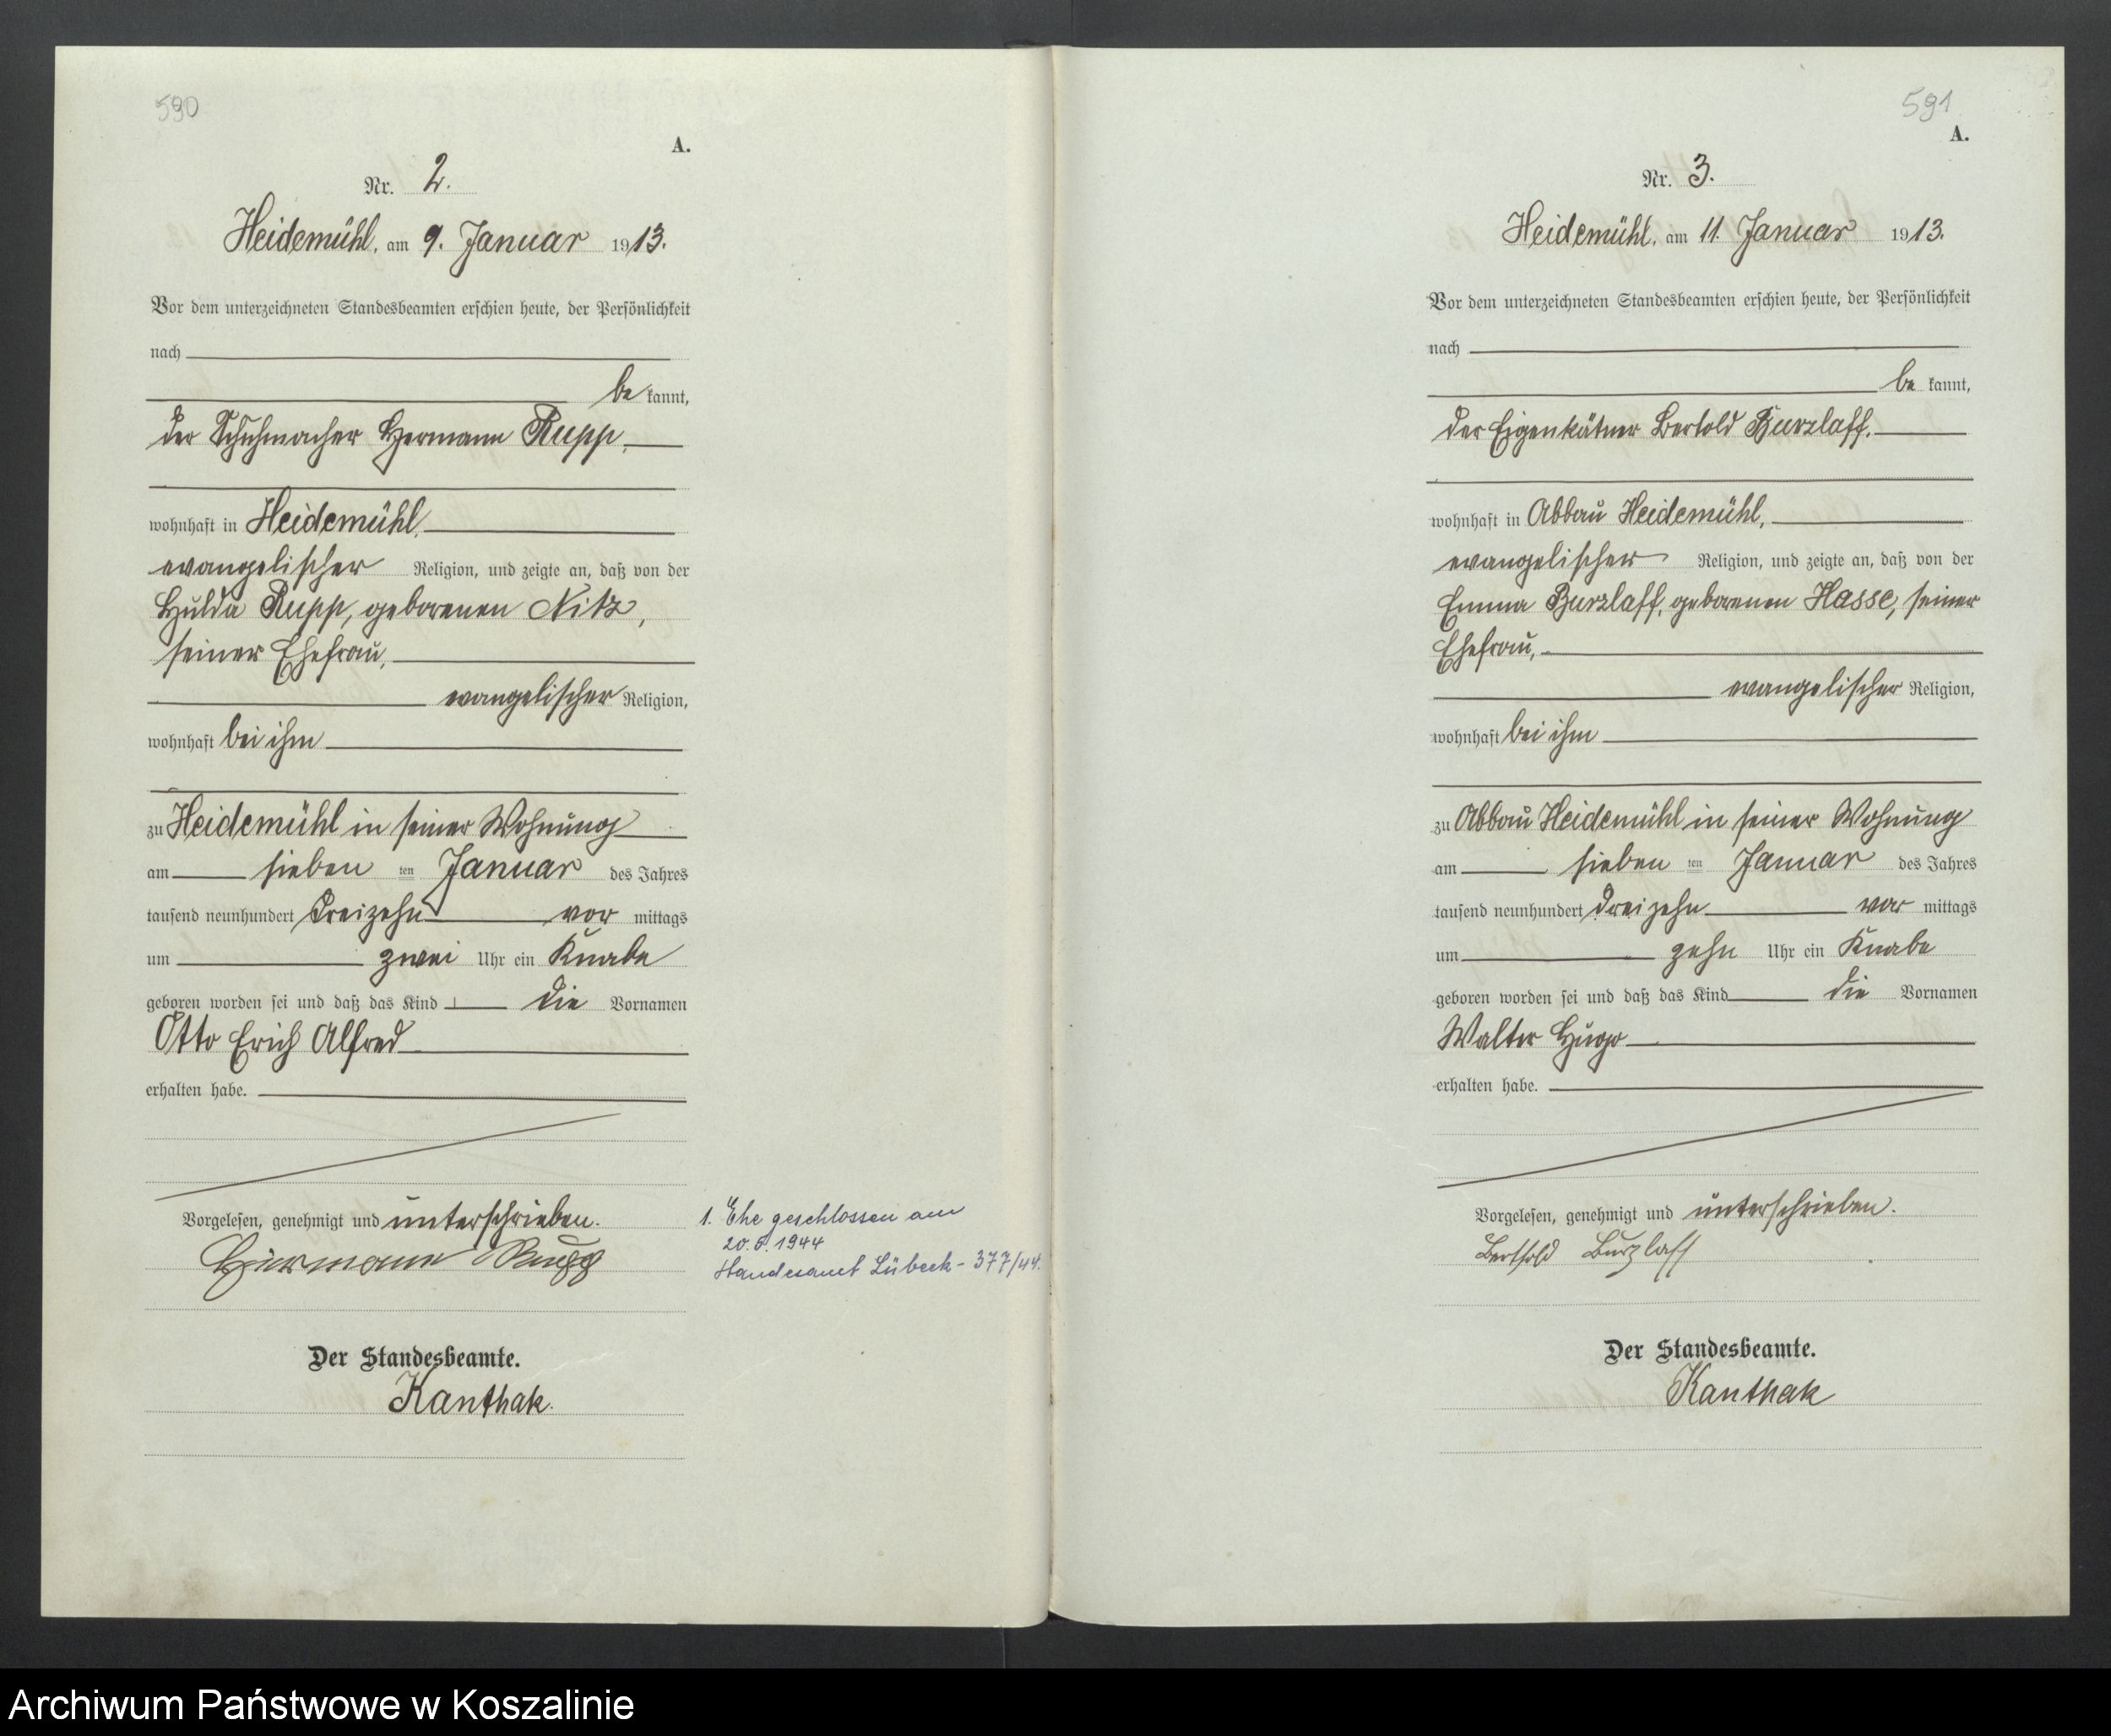 590
A.
Nr. 2.
Heidemühl, am 9. Januar 1913.
Vor dem unterzeichneten Standesbeamten erschien heute, der Persönlichkeit
nach
be kannt,
der Schuhmacher Hermann Rupp,
wohnhaft in Heidemühl,
evangelischer Religion, und zeigte an, daß von der
Hulda Rupp, geborenen Nitz,
seiner Ehefrau,
evangelischer Religion,
wohnhaft bei ihm
zu Heidemühl in seiner Wohnung
am sieben ten Januar des Jahres
tausend neunhundert dreizehn vor mittags
um zwei Uhr ein Knabe
geboren worden sei und daß das Kind die Vornamen
Otto Erich Alfred
erhalten habe.
Vorgelesen, genehmigt und unterschrieben.
Hermann Rupp
1. Ehe geschlossen am
20. 5. 1944
Standesamt Lübeck - 377/44.
Der Standesbeamte.
Kanthak.
591
A.
Nr. 3.
Heidemühl, am 11. Januar 1913.
Vor dem unterzeichneten Standesbeamten erschien heute, der Persönlichkeit
nach
be kannt,
der Eigenkätner Bertold Burzlaff,
wohnhaft in Abbau Heidemühl,
evangelischer Religion, und zeigte an, daß von der
Emma Burzlaff, geborenen Hasse, seiner
Ehefrau,
evangelischer Religion,
wohnhaft bei ihm
zu Abbau Heidemühl in seiner Wohnung
am sieben ten Januar des Jahres
tausend neunhundert dreizehn vor mittags
um zehn Uhr ein Knabe
geboren worden sei und daß das Kind die Vornamen
Walter Hugo
erhalten habe.
Vorgelesen, genehmigt und unterschrieben.
Berthold Burzlaff
Der Standesbeamte.
Kanthak
Archiwum Państwowe w Koszalinie